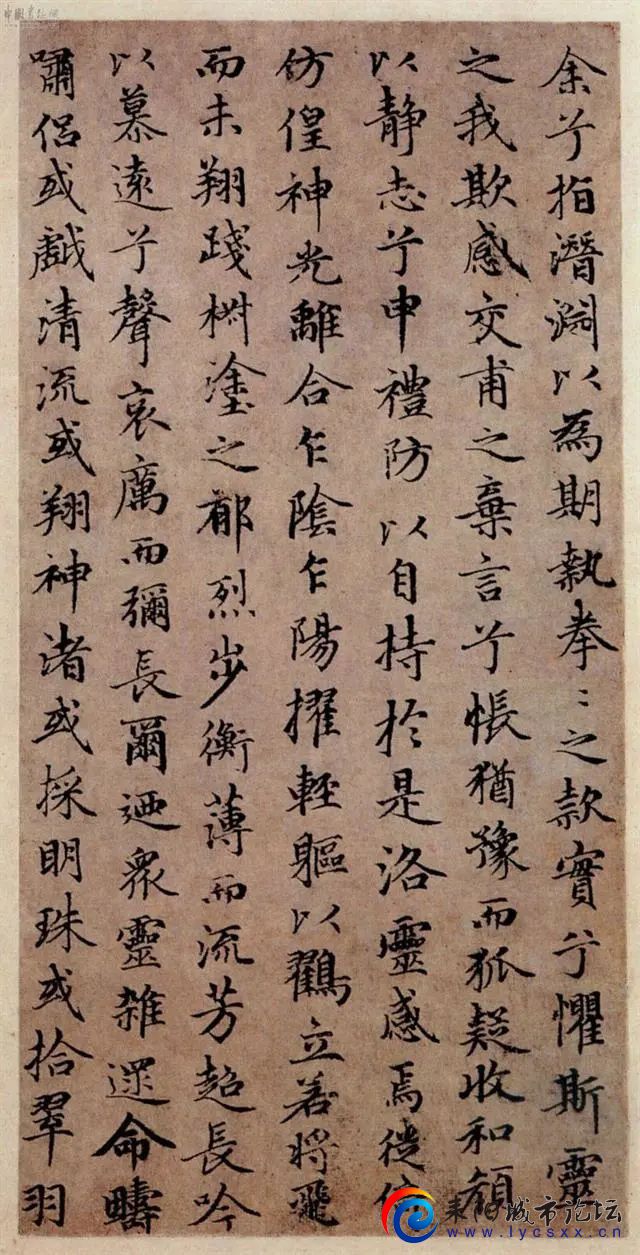 余兮指潛淵以為期執拳〻之款實兮懼斯靈
之我欺感交甫之棄言兮悵猶豫而狐疑收和顏
以静志兮申禮防以自持於是洛靈感焉徙倚
仿偟神光離合乍陰乍陽擢輕軀以鶴立若將飛
而未翔踐椒塗之郁烈步衡薄而流芳超長吟
以慕遠兮聲哀厲而彌長爾迺眾靈雜遝命疇
嘯侶或戲清流或翔神渚或採明珠或拾翠羽
耒阳城市论坛
www.lycsxx.cn